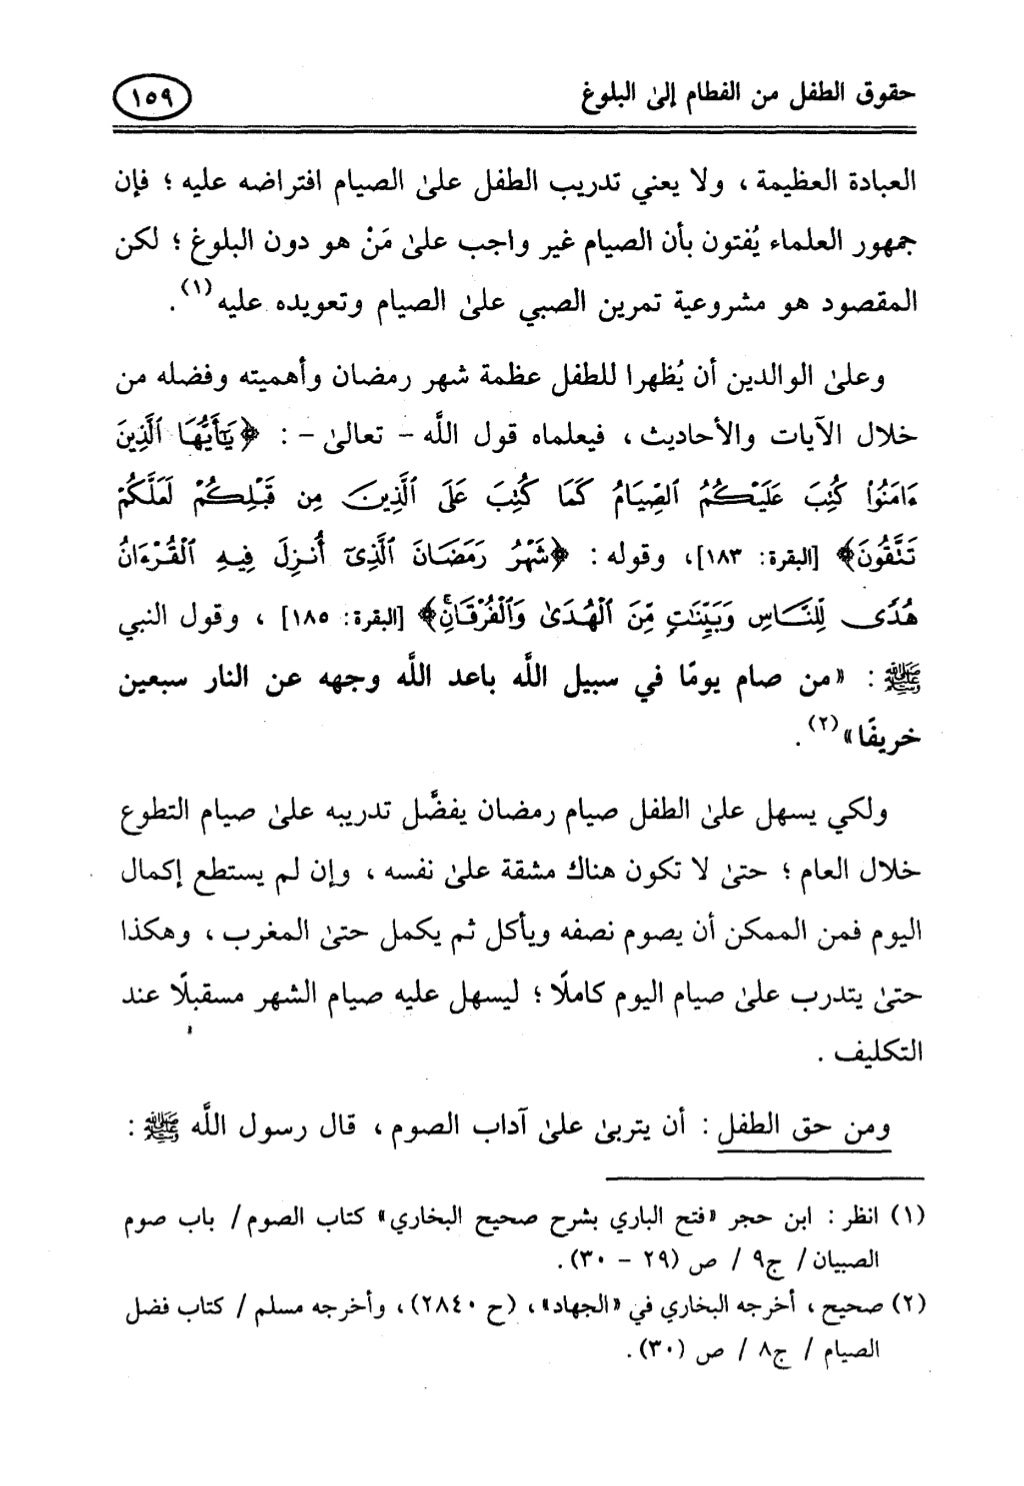 حقوق الطفل من الفطام إلى البلوغ ١٥٩
العبادة العظيمة ، ولا يعني تدريب الطفل على الصيام افتراضه عليه ؛ فإن
جمهور العلماء يُفتون بأن الصيام غير واجب على مَنْ هو دون البلوغ ؛ لكن
المقصود هو مشروعية تمرين الصبي على الصيام وتعويده عليه(١) .
وعلى الوالدين أن يُظهرا للطفل عظمة شهر رمضان وأهميته وفضله من
خلال الآيات والأحاديث ، فيعلماه قول اللَّه – تعالى – : ﴿يَٰٓأَيُّهَا ٱلَّذِينَ
ءَامَنُوا۟ كُتِبَ عَلَيْكُمُ ٱلصِّيَامُ كَمَا كُتِبَ عَلَى ٱلَّذِينَ مِن قَبْلِكُمْ لَعَلَّكُمْ
تَتَّقُونَ﴾ [البقرة: ١٨٣]، وقوله : ﴿شَهْرُ رَمَضَانَ ٱلَّذِىٓ أُنزِلَ فِيهِ ٱلْقُرْءَانُ
هُدًى لِّلنَّاسِ وَبَيِّنَٰتٍ مِّنَ ٱلْهُدَىٰ وَٱلْفُرْقَانِۚ﴾ [البقرة: ١٨٥] ، وقول النبي
ﷺ : «من صام يومًا في سبيل اللَّه باعد اللَّه وجهه عن النار سبعين
خريفًا»(٢) .
ولكي يسهل على الطفل صيام رمضان يفضَّل تدريبه على صيام التطوع
خلال العام ؛ حتى لا تكون هناك مشقة على نفسه ، وإن لم يستطع إكمال
اليوم فمن الممكن أن يصوم نصفه ويأكل ثم يكمل حتى المغرب ، وهكذا
حتى يتدرب على صيام اليوم كاملًا ؛ ليسهل عليه صيام الشهر مسقبلًا عند
التكليف .
ومن حق الطفل : أن يتربى على آداب الصوم ، قال رسول اللَّه ﷺ :
(١) انظر : ابن حجر «فتح الباري بشرح صحيح البخاري» كتاب الصوم / باب صوم
الصبيان / ج٩ / ص (٢٩ – ٣٠).
(٢) صحيح ، أخرجه البخاري في «الجهاد»، (ح ٢٨٤٠)، وأخرجه مسلم / كتاب فضل
الصيام / ج٨ / ص (٣٠).